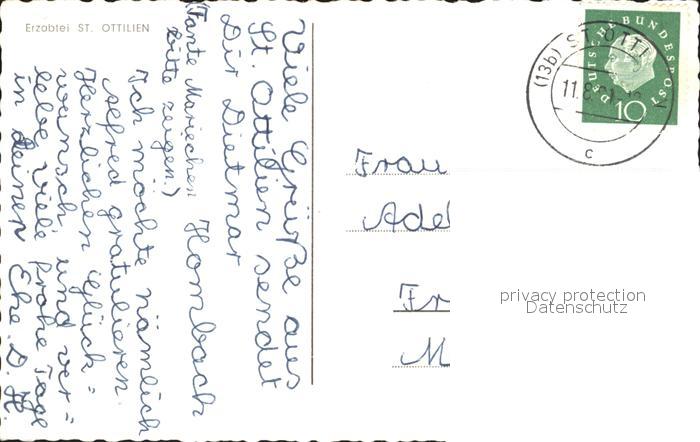 Erzabtei ST. OTTILIEN
Viele Grüße aus
St. Ottilien sendet
Dir Dietmar
Hombach
(Tante Mariechen
bitte zeigen.)
Ich möchte nämlich
Alfred gratulieren.
Herzlichen Glück=
wunsch und ver=
lebe viele frohe Tage
in deiner Ehe D. H.
DEUTSCHE BUNDESPOST
10
(13b) ST. OTTI
11.8.
c
Frau
Ade
Fr
M
privacy protection
Datenschutz